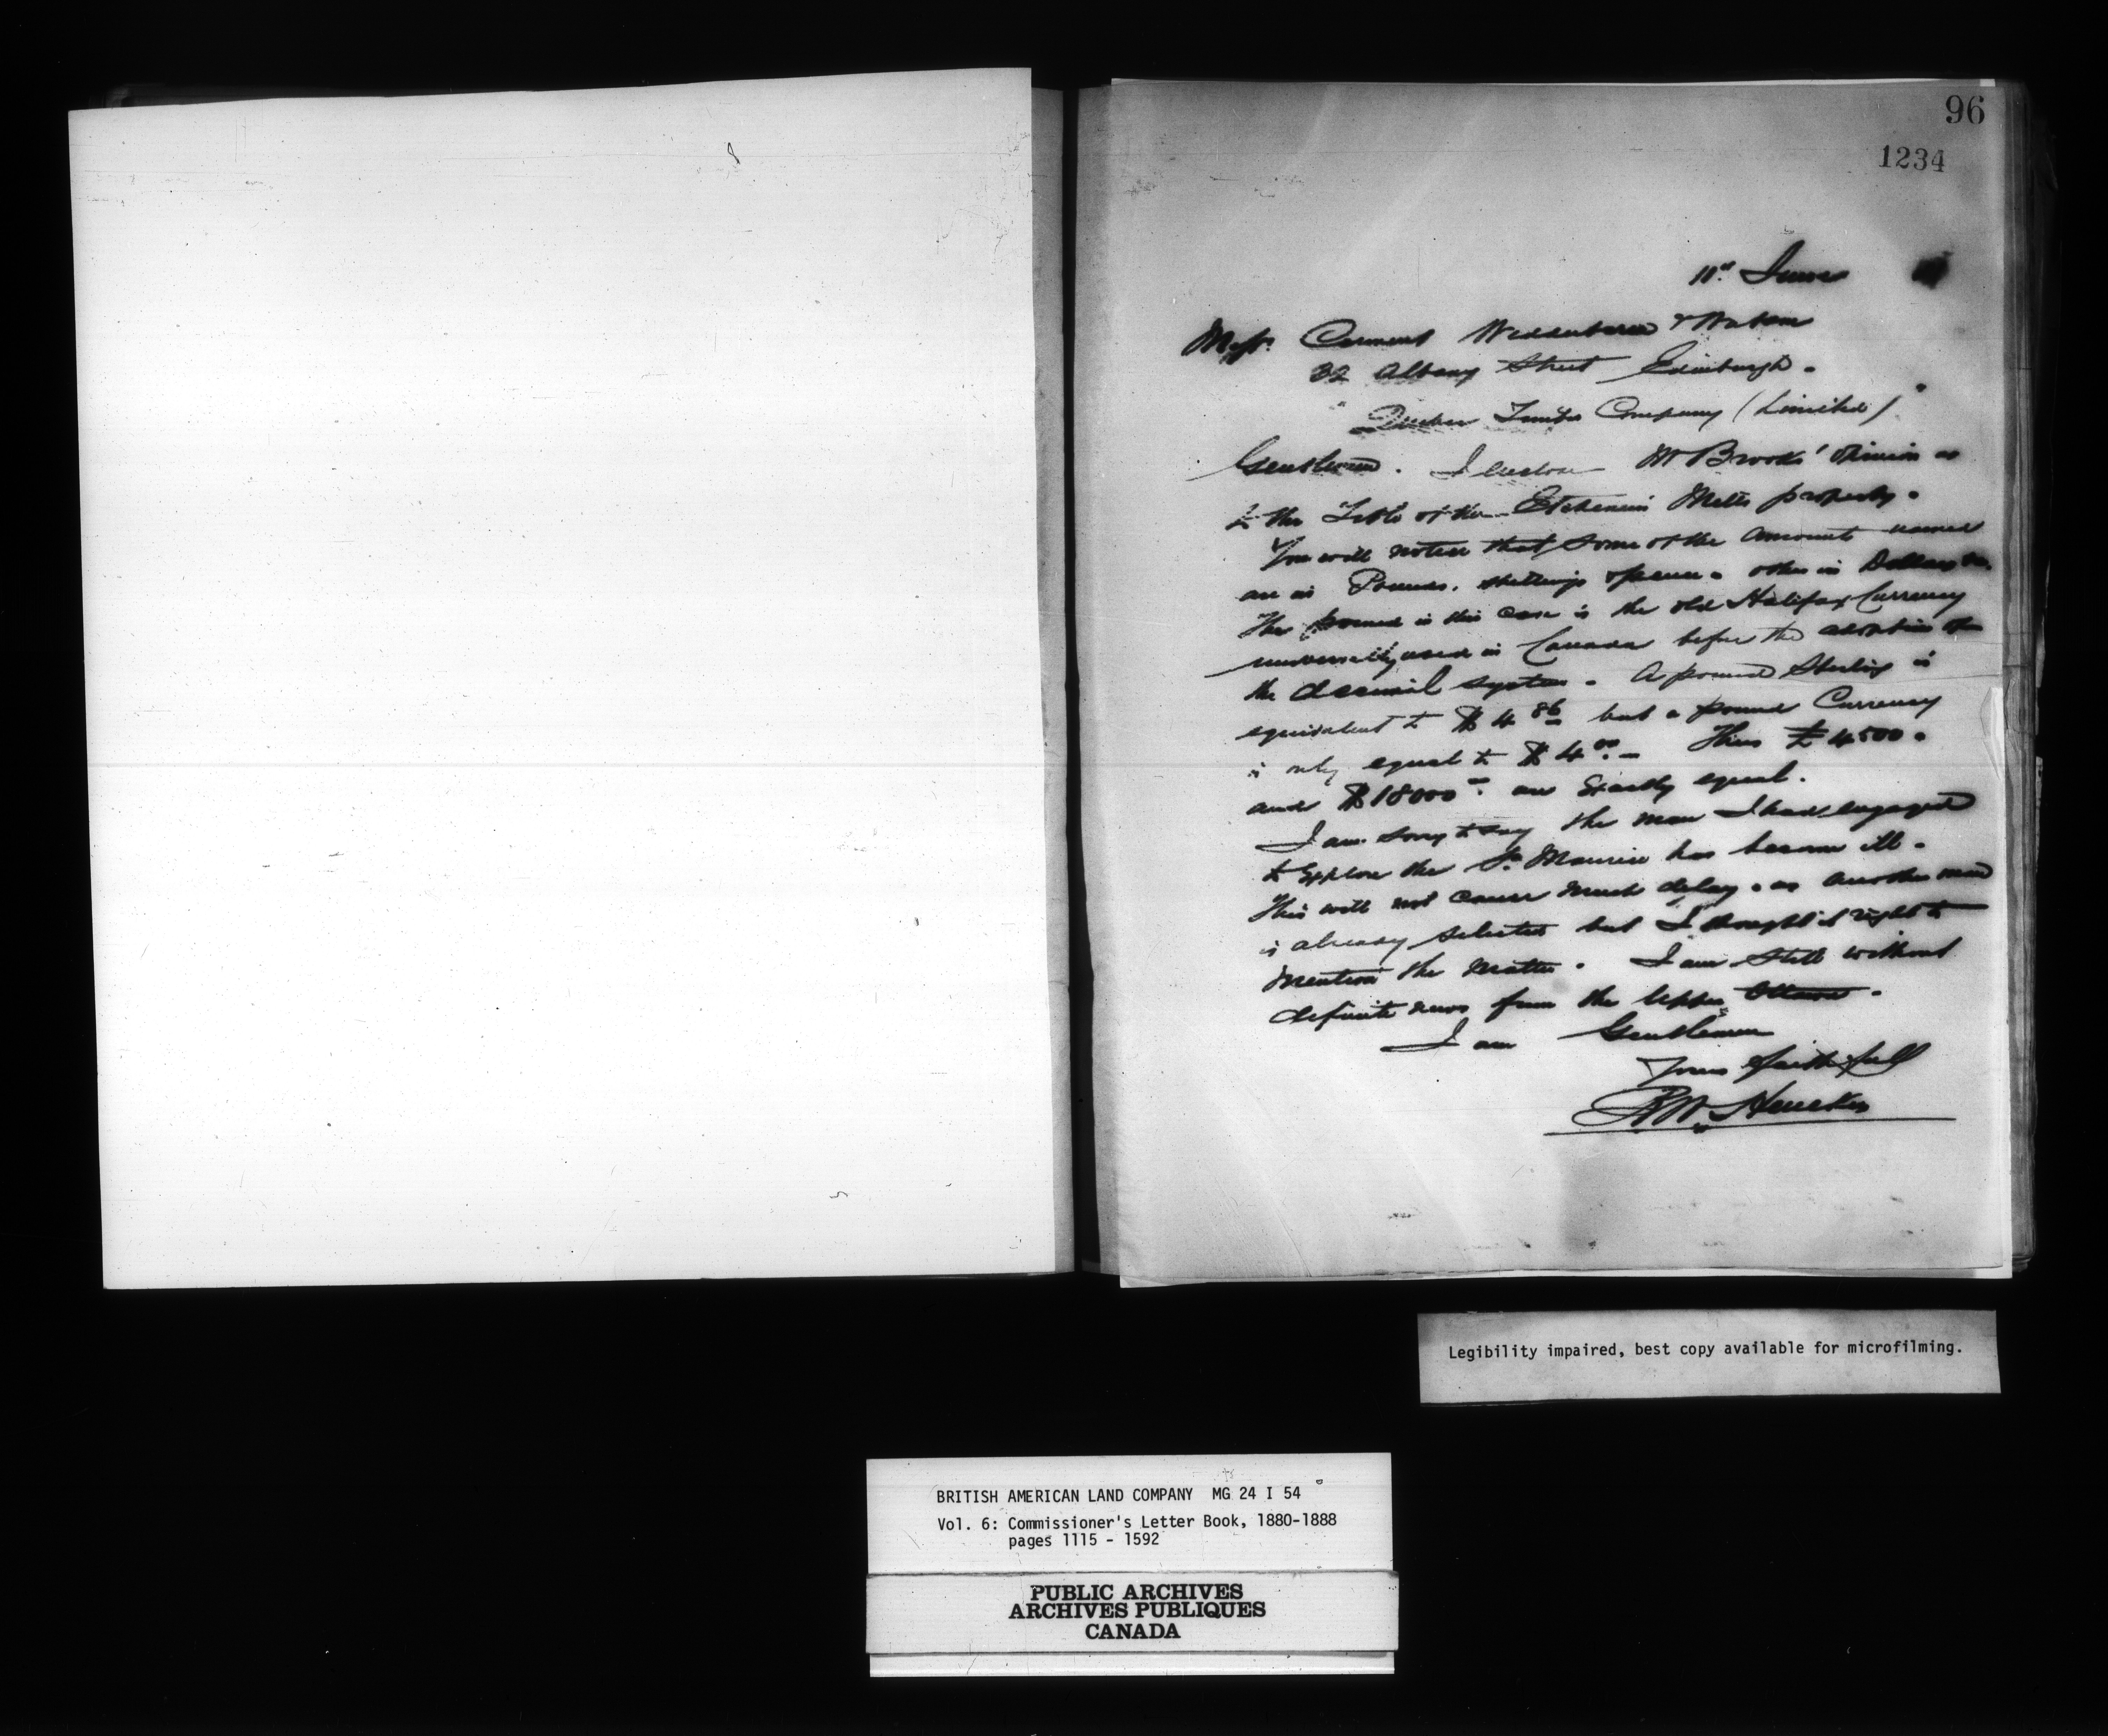 96
1234
11th June
Messrs Carment Wedderburn & Watson
32 Albany Street Edinburgh.
"Quebec Timber Company (Limited)"
Gentlemen. I enclose Mr Brooks' opinion as
to the Title of the Etchemin Mills property.
You will notice that some of the amounts named
are in Pounds, shillings & pence. others in Dollars
The pound in this case is the old Halifax Currency
universally used in Canada before the adoption of
the decimal system. A pound Sterling is
equivalent to $4.86 but a pound Currency
is only equal to $4.00 — Thus £4500.
and $18000.— are Exactly equal.
I am sorry to say the man I had engaged
to Explore the St. Maurice has become ill.
This will not cause much delay. as another man
is already selected but I thought it right to
mention the matter. I am still without
definite news from the Upper Ottawa.
I am Gentlemen
Yours faithfull
R W Heneker
Legibility impaired, best copy available for microfilming.
BRITISH AMERICAN LAND COMPANY MG 24 I 54
Vol. 6: Commissioner's Letter Book, 1880-1888
pages 1115 - 1592
PUBLIC ARCHIVES
ARCHIVES PUBLIQUES
CANADA